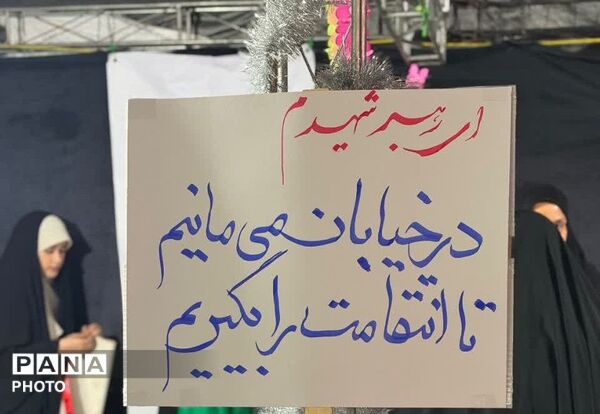 ای رهبر شهیدم
در خیابان می مانیم
تا انتقامت را بگیریم
PANA
PHOTO